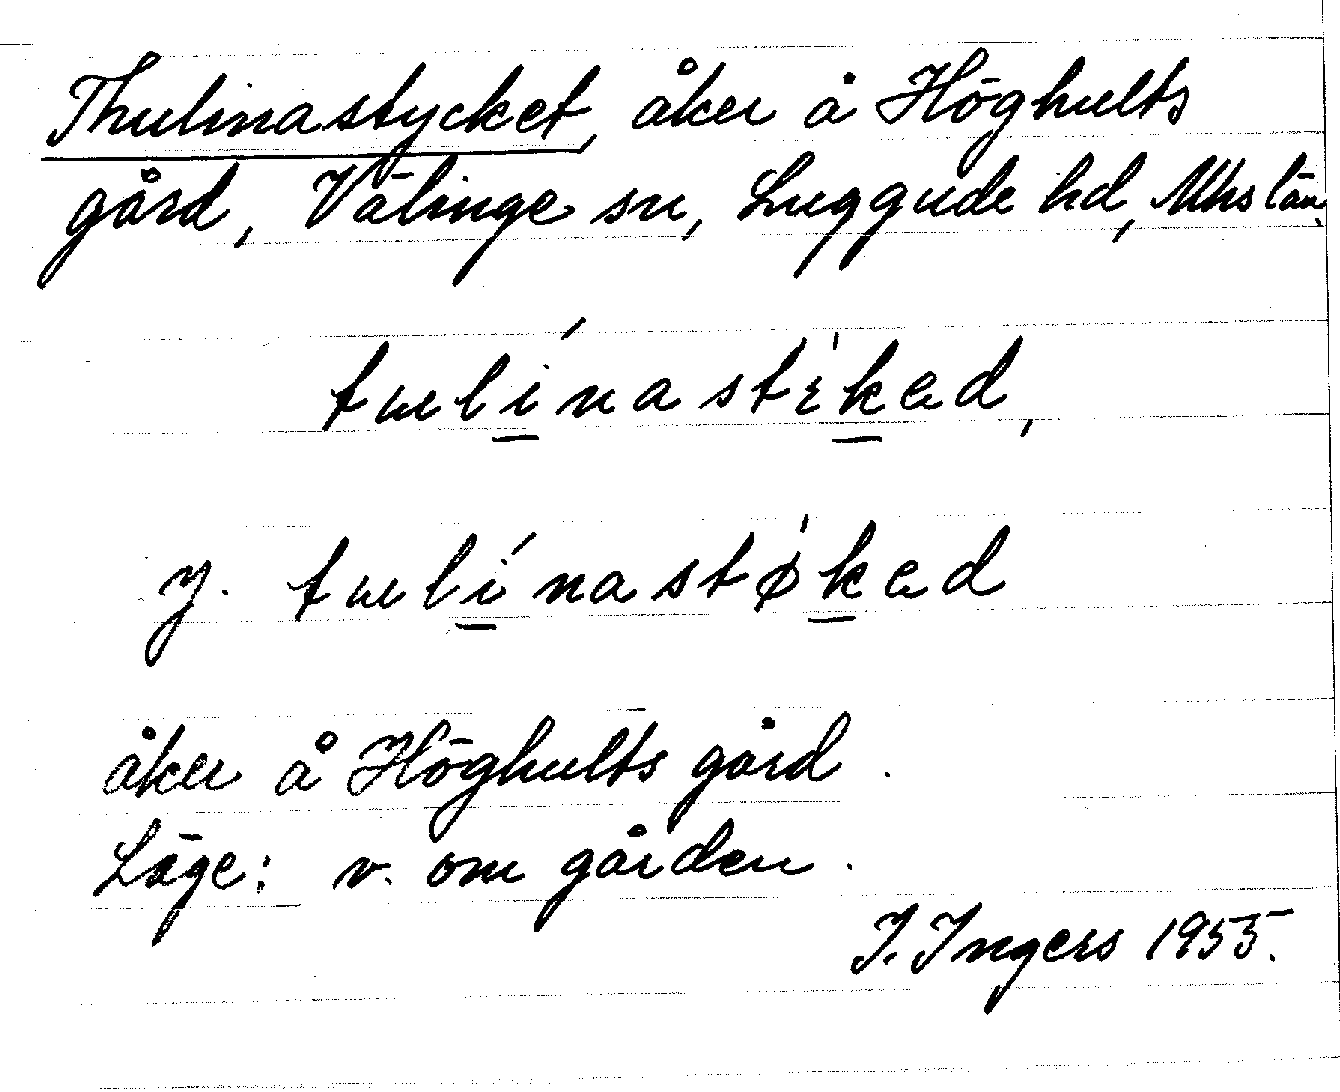 Thulinastycket, åker å Höghults
gård, Välinge sn, Luggude hd, Mhs län.
tulínastɩkad,
y. tulínastøkad
åker å Höghults gård.
Läge: v. om gården.
I. Ingers 1955.